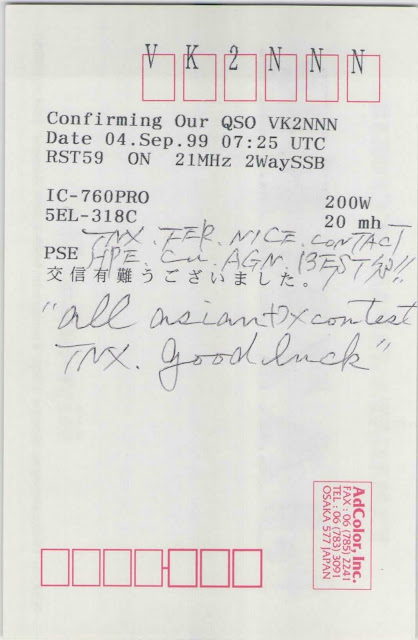 VK2NNN
Confirming Our QSO VK2NNN
Date 04.Sep.99 07:25 UTC
RST59 ON 21MHz 2WaySSB
IC-760PRO 200W
5EL-318C 20 mh
TNX. FER. NICE. CONTACT
PSE HPE. CU. AGN. BEST 73!!
交信有難うございました。
"all asian DX contest
TNX. Good luck"
AdColor, Inc.
FAX : 06 (785) 2241
TEL : 06 (783) 3091
OSAKA 577 JAPAN